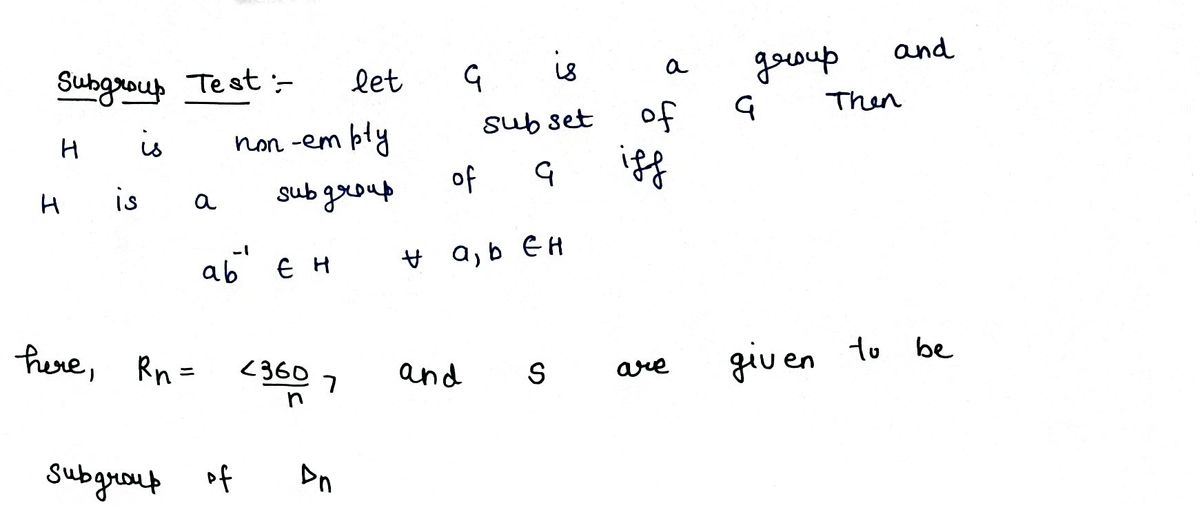 Subgroup Test :- let G is a group and
H is non-empty subset of G Then
H is a subgroup of G iff
ab⁻¹ ∈ H ∀ a, b ∈ H
here, Rn = <360/n> and S are given to be
subgroup of Dn